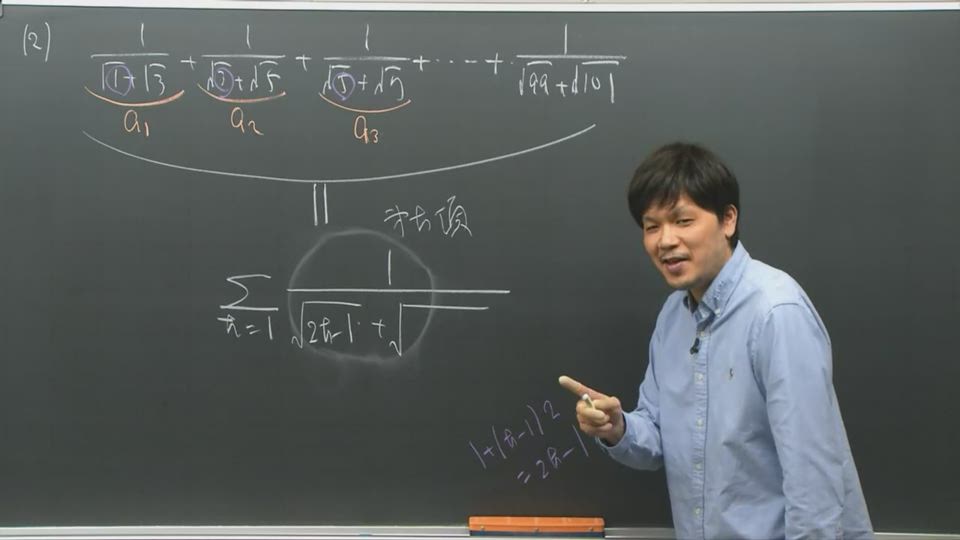 (2) 1/(√1+√3) + 1/(√3+√5) + 1/(√5+√7) + ····· + 1/(√99+√101)
a₁ a₂ a₃
||
第k項
Σ k=1 1/(√2k-1 + √ )
1+(k-1)2
=2k-1